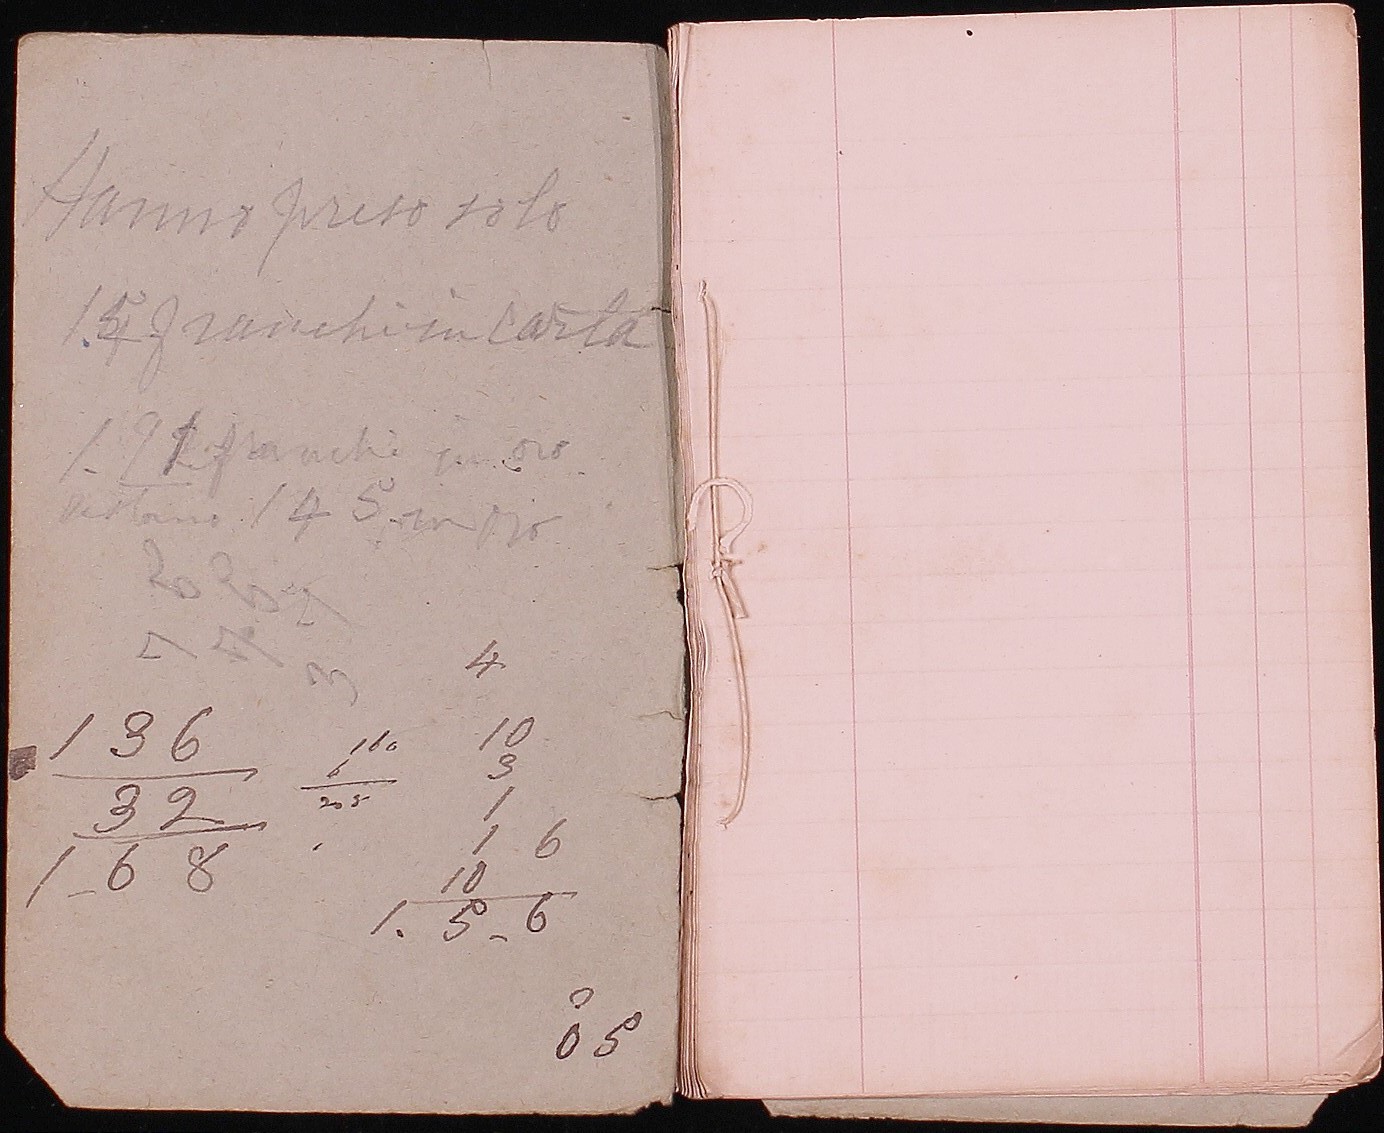 Hanno preso solo
franchi in carta
1.91 franchi in oro
145 in oro
20 20
7
3
4
136
32
1_68
205
10
3
1
1 6
10
1. 5_6
0 5